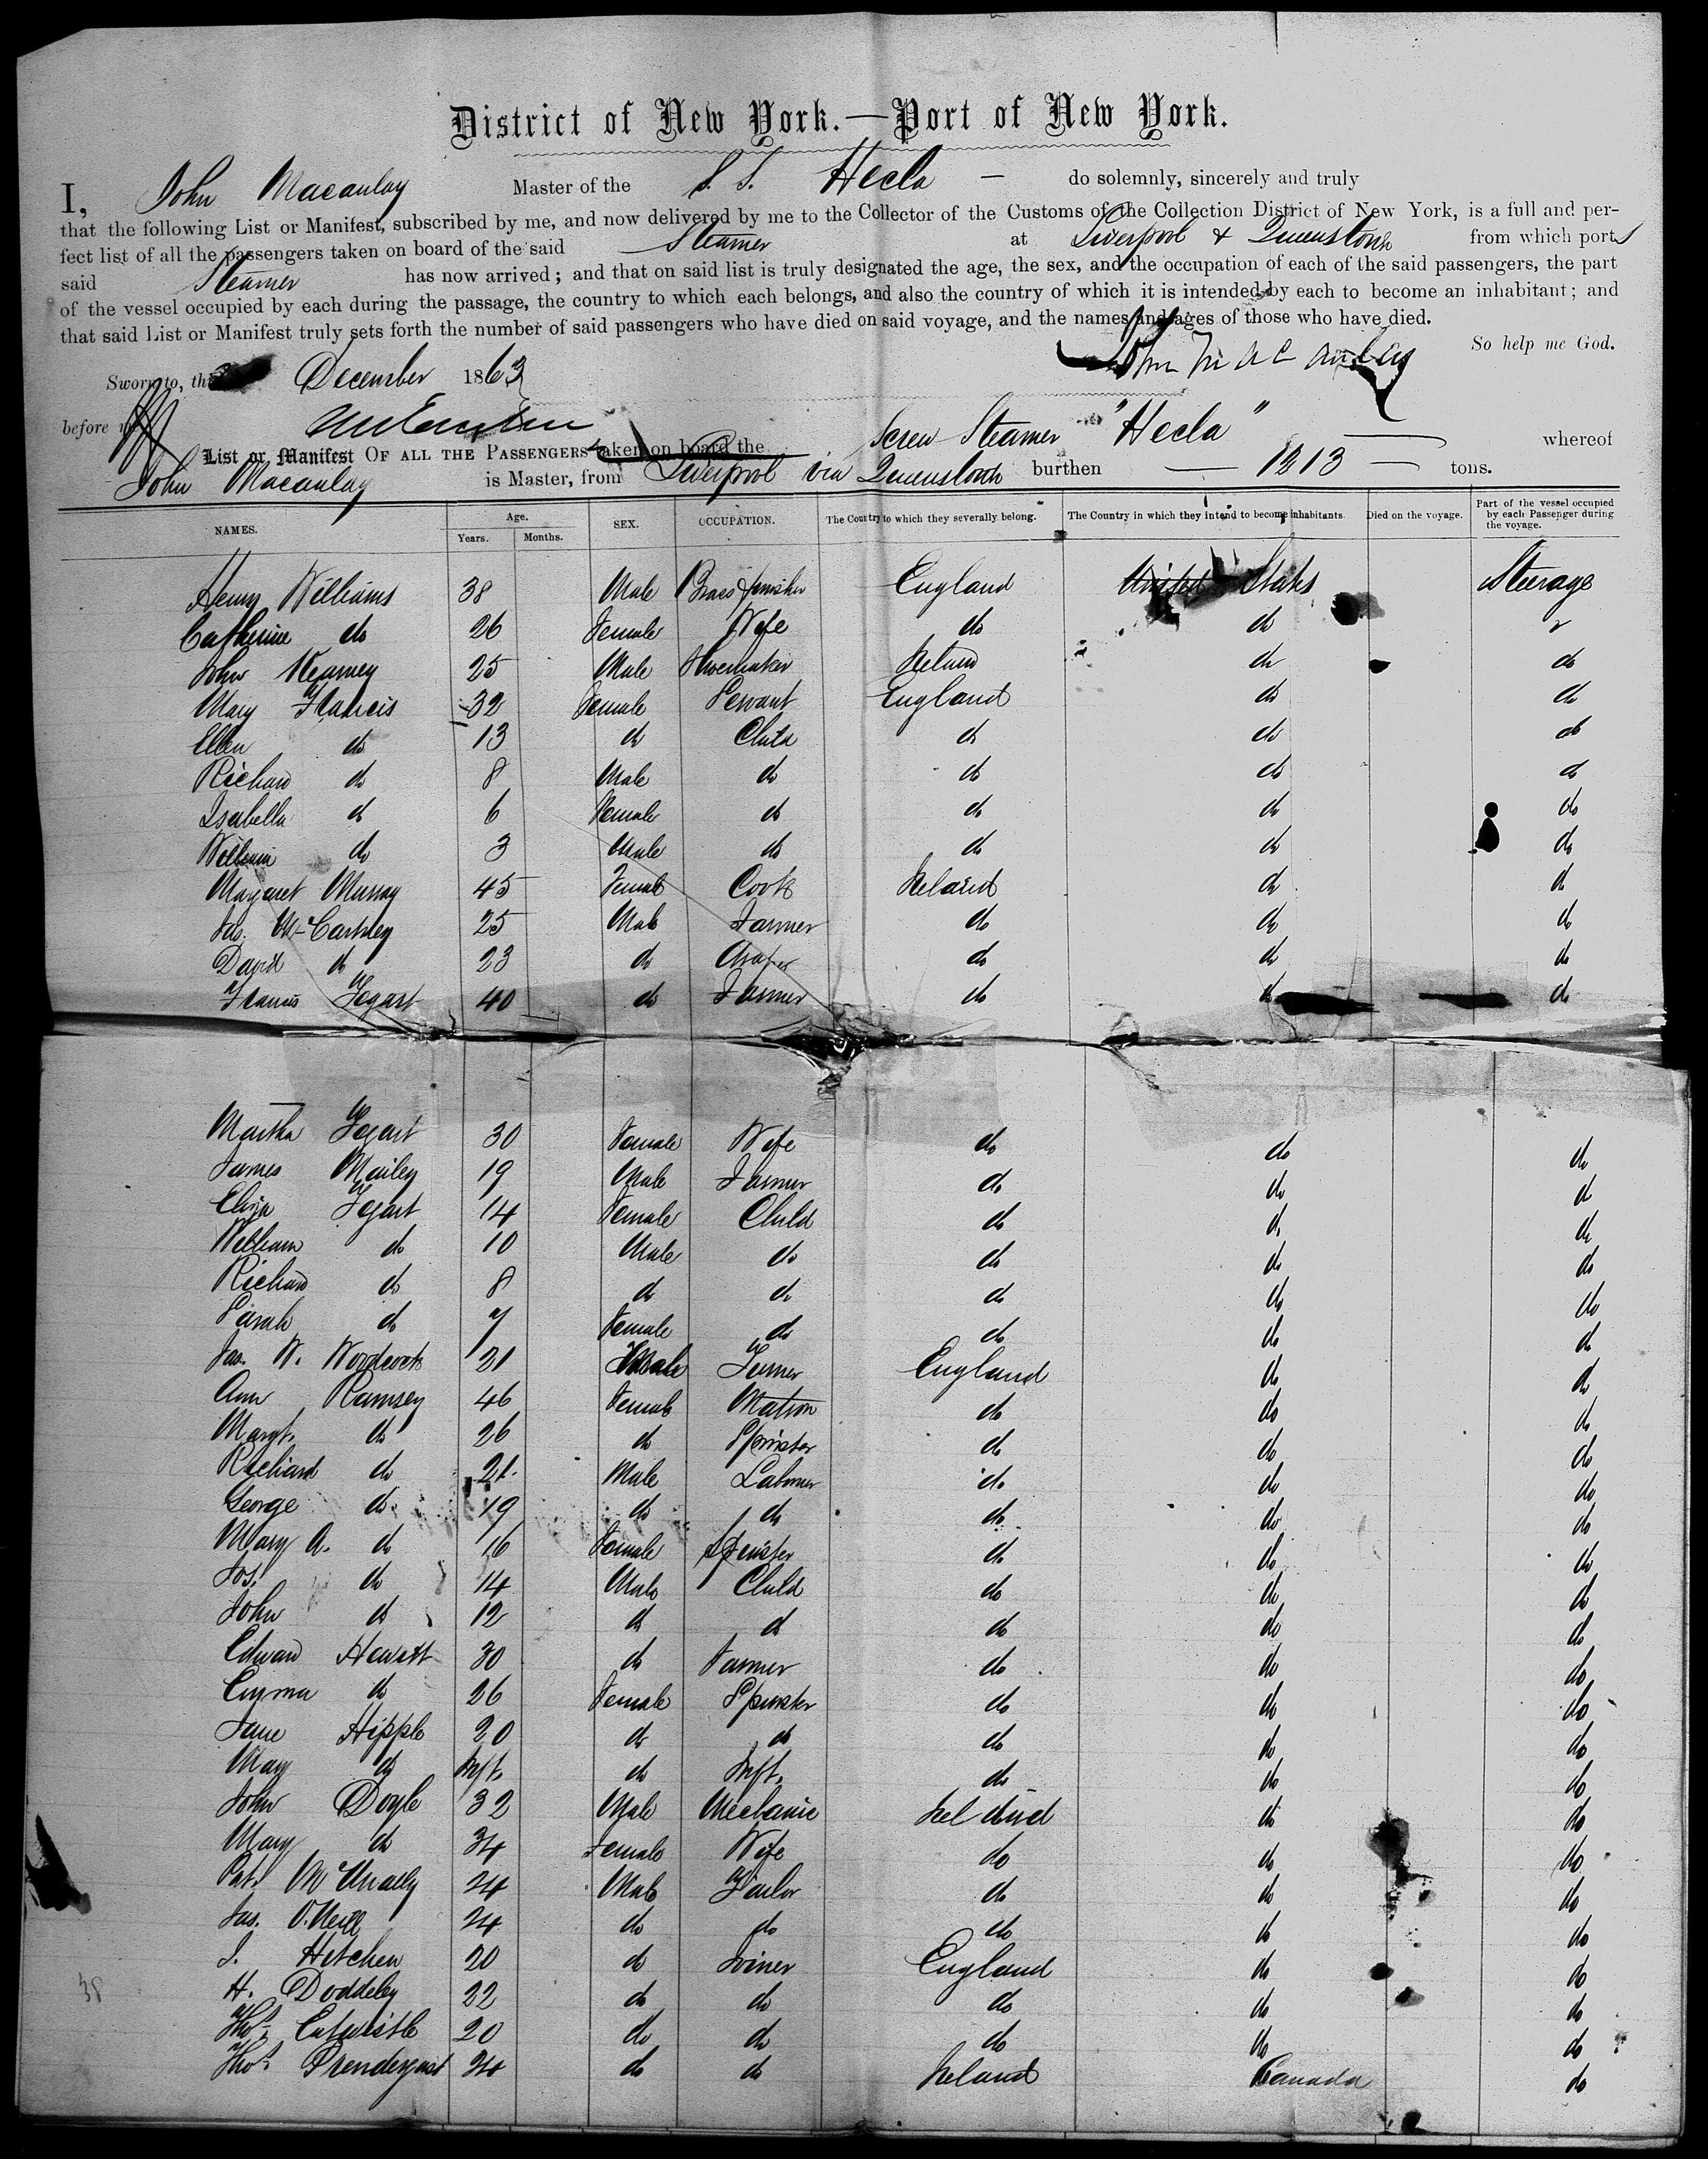 District of New York.—Port of New York.
I, John Macaulay Master of the S. S. Hecla — do solemnly, sincerely and truly
that the following List or Manifest, subscribed by me, and now delivered by me to the Collector of the Customs of the Collection District of New York, is a full and per-
fect list of all the passengers taken on board of the said Steamer at Liverpool & Queenstown from which ports
said Steamer has now arrived; and that on said list is truly designated the age, the sex, and the occupation of each of the said passengers, the part
of the vessel occupied by each during the passage, the country to which each belongs, and also the country of which it is intended by each to become an inhabitant; and
that said List or Manifest truly sets forth the number of said passengers who have died on said voyage, and the names and ages of those who have died.
So help me God.
Sworn to, this December 1863 John Macaulay
before me
List or Manifest OF ALL THE PASSENGERS taken on board the Screw Steamer "Hecla" whereof
John Macaulay is Master, from Liverpool via Queenstown burthen — 1313 — tons.
NAMES. Age. Years. Months. SEX. OCCUPATION. The Country to which they severally belong. The Country in which they intend to become inhabitants. Died on the voyage. Part of the vessel occupied by each Passenger during the voyage.
Henry Williams 38 Male Brass finisher England United States Steerage
Catherine do 26 Female Wife do do
John Kearney 25 Male Shoemaker Ireland do do
Mary Francis 32 Female Servant England do do
Ellen do 13 do Child do do do
Richard do 8 Male do do do do
Isabella do 6 Female do do do do
William do 3 Male do do do do
Margaret Murray 45 Female Cook Ireland do do
Jas. McCartney 25 Male Farmer do do do
David do 23 do Draper do do do
Francis Tegart 40 do Farmer do do do
Martha Tegart 30 Female Wife do do do
James Mailey 19 Male Farmer do do do
Eliza Tegart 14 Female Child do do do
William do 10 Male do do do do
Richard do 8 do do do do do
Sarah do 7 Female do do do do
Jas. W. Woodcock 21 Male Turner England do do
Ann Ramsey 46 Female Matron do do do
Margt. do 26 do Spinster do do do
Richard do 21 Male Labourer do do do
George do 19 do do do do do
Mary A. do 16 Female Spinster do do do
Jos. do 14 Male Child do do do
John do 12 do do do do do
Edward Hewitt 30 do Farmer do do do
Emma do 26 Female Spinster do do do
Jane Hipple 20 do do do do do
Mary do Inft. do Inft. do do do
John Doyle 32 Male Mechanic Ireland do do
Mary do 34 Female Wife do do do
Pat. McAnally 24 Male Tailor do do do
Jas. O'Neill 24 do do do do do
J. Hitchen 20 do Joiner England do do
H. Doddeley 22 do do do do do
Thos. Entwistle 20 do do do do do
Thos. Prendergast 24 do do Ireland Canada do